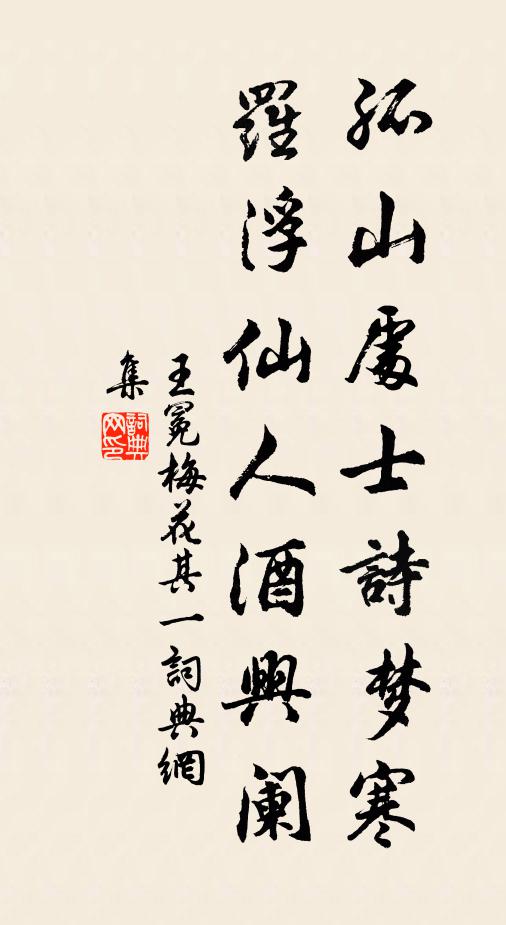 孤山處士詩梦寒
羅浮仙人酒興阑
王冕梅花其一詞典網
集
詞典
网印